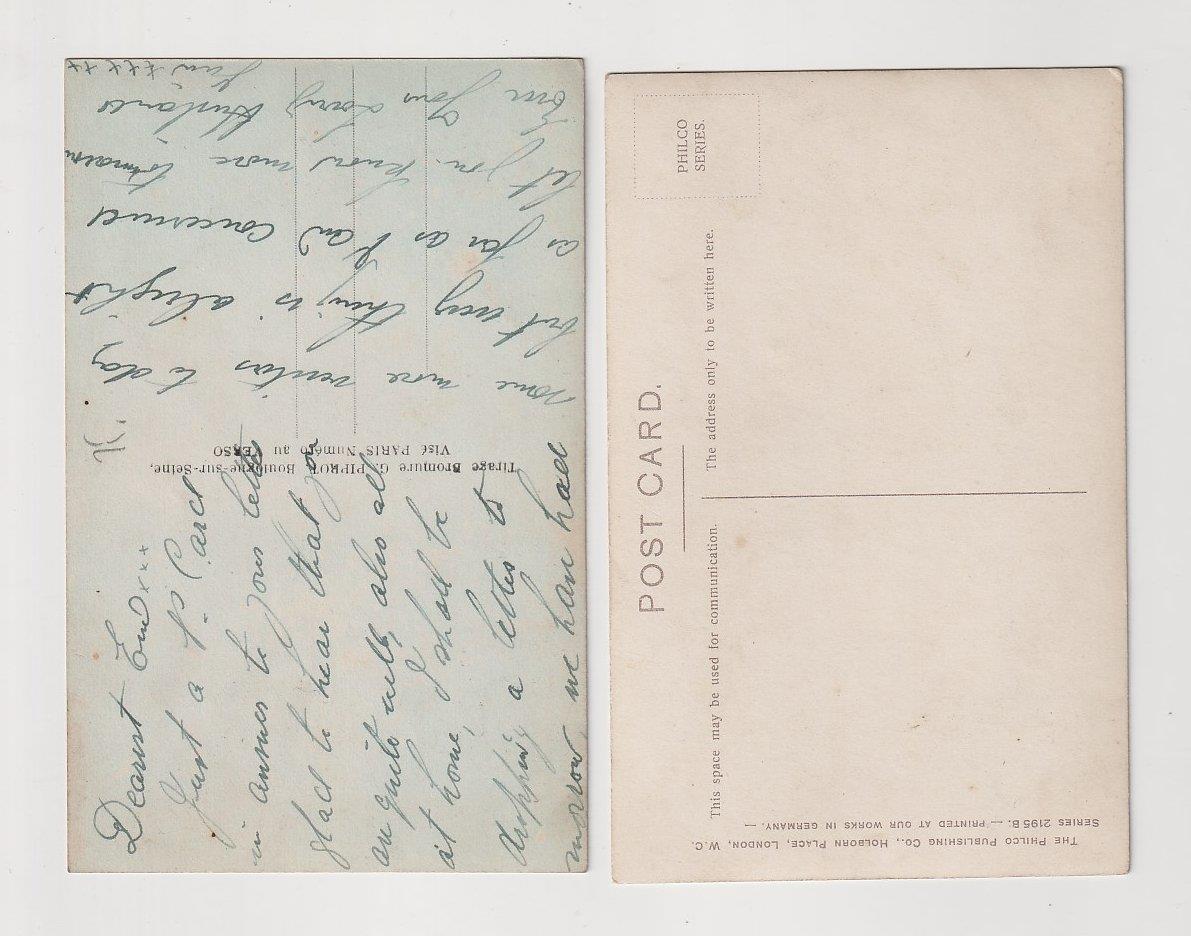 Dearest Em xxx
Just a P. Card
in answer to your letter
glad to hear that you
are quite well, also all
at home, I shall be
dropping a letter to
morrow, we have had
some more visitors to day
but every thing is alright
as far as I am concerned
let you know more tomorrow
from Your Loving Husband
xxxxx
Tirage Bromure G. PIPROT, Boulogne-sur-Seine,
Visé PARIS Numéro au VERSO
PHILCO
SERIES.
POST CARD.
This space may be used for communication.
The address only to be written here.
THE PHILCO PUBLISHING CO., HOLBORN PLACE, LONDON, W.C.
SERIES 2195 B. — PRINTED AT OUR WORKS IN GERMANY. —